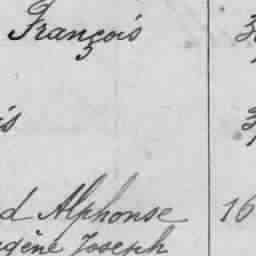 François
is
d Alphonse 16
gène Joseph